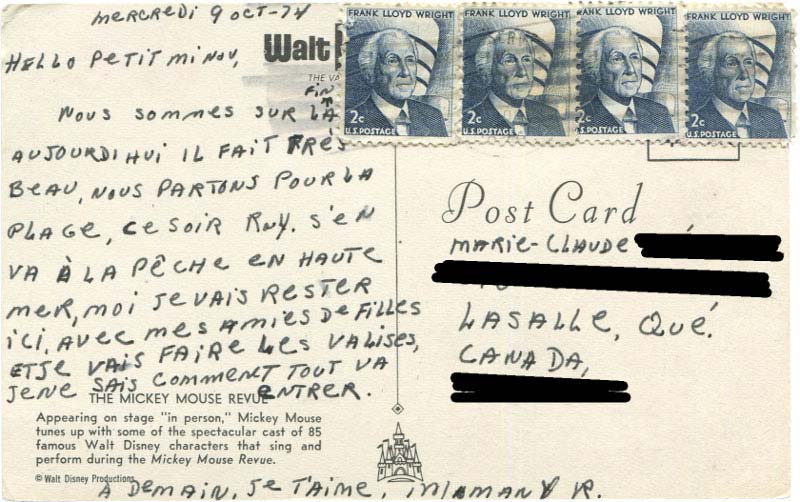 MERCREDI 9 OCT-74
HELLO PETIT MINOU,
Walt
THE
FIN
NOUS SOMMES SUR LA
AUJOURDI HUI IL FAIT TRÈS
BEAU, NOUS PARTONS POUR LA
PLAGE, CE SOIR RNY. S'EN
VA À LA PÊCHE EN HAUTE
MER, MOI JE VAIS RESTER
ICI, AVEC MES AMIES DE FILLES
ET JE VAIS FAIRE LES VALISES,
JE NE SAIS COMMENT TOUT VA
ENTRER.
THE MICKEY MOUSE REVUE
Appearing on stage "in person," Mickey Mouse
tunes up with some of the spectacular cast of 85
famous Walt Disney characters that sing and
perform during the Mickey Mouse Revue.
© Walt Disney Productions
A DEMAIN, JE T'AIME, MAMAN X R.
FRANK LLOYD WRIGHT
2c
U.S. POSTAGE
FRANK LLOYD WRIGHT
2c
U.S. POSTAGE
FRANK LLOYD WRIGHT
2c
U.S. POSTAGE
FRANK LLOYD WRIGHT
2c
U.S. POSTAGE
Post Card
MARIE-CLAUDE
LASALLE, QUÉ.
CANADA,